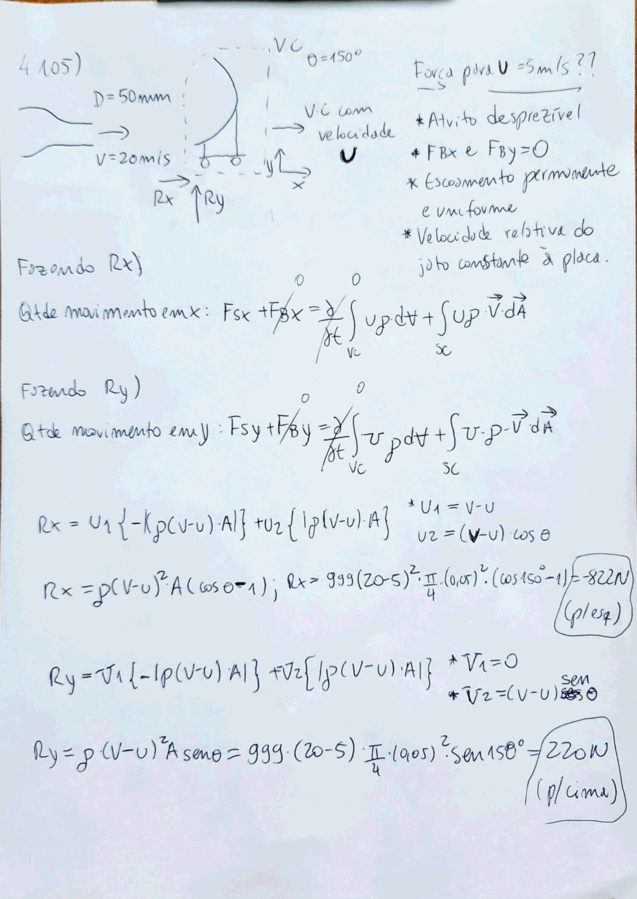 4.105)
VC
θ=150°
D=50mm
V=20m/s
VC com
velocidade
U
y
x
Rx
Ry
Força para U=5m/s??
*Atrito desprezível
*FBx e FBy=0
*Escoamento permanente
e uniforme
*Velocidade relativa do
jato constante à placa.
Fazendo Rx)
0 0
Qtde movimento em x: Fsx + FBx = ∂/∂t ∫VC uρd∀ + ∫SC uρ V⃗·dA⃗
Fazendo Ry)
0 0
Qtde movimento em y: Fsy + FBy = ∂/∂t ∫VC v ρd∀ + ∫SC v·ρ·V⃗·dA⃗
Rx = u1{-|ρ(V-u)·A|} + u2{|ρ(V-u)·A} *u1 = V-u
u2 = (V-u)·cosθ
Rx = ρ(V-u)²·A(cosθ-1); Rx = 999(20-5)²·π/4·(0,05)²·(cos150°-1) = -822N
(p/esq)
Ry = v1{-|ρ(V-u)A|} + v2{|ρ(V-u)·A|} *v1=0
*v2=(V-u) sen θ
Ry = ρ·(V-u)²A senθ = 999·(20-5)·π/4·(0,05)²·sen150° = 220N
(p/cima)